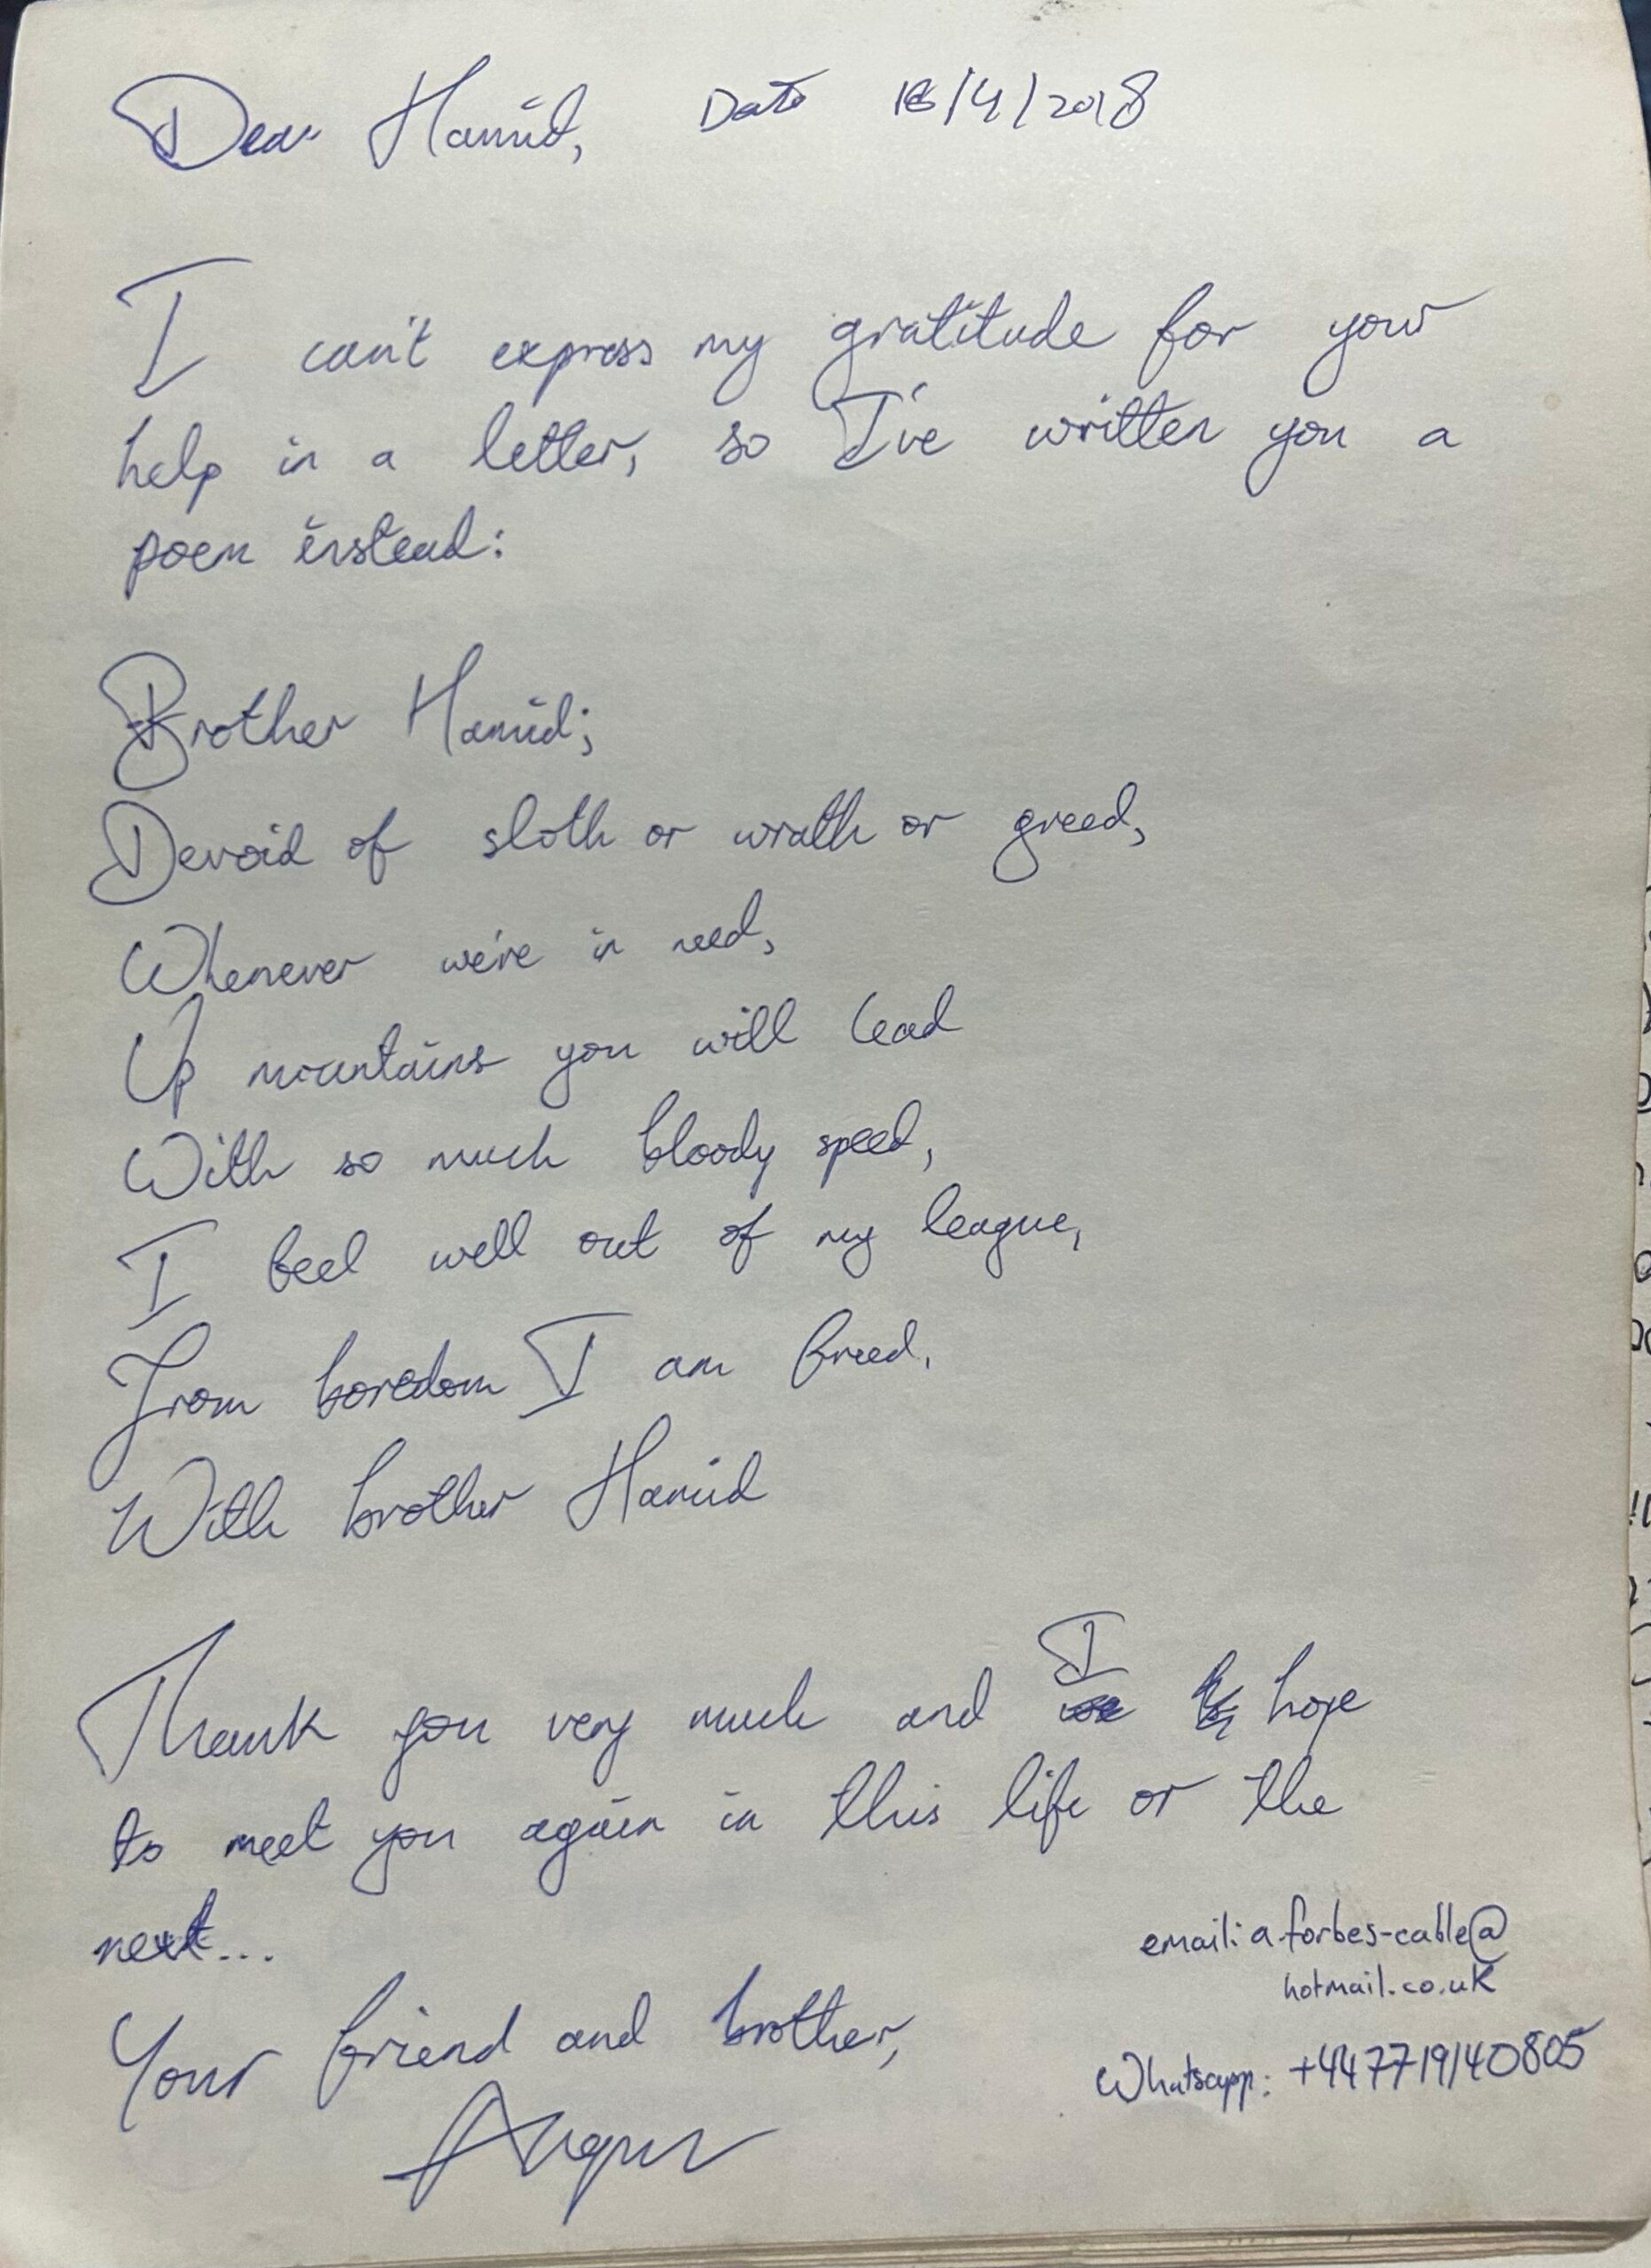 Dear Hamid, Date 16/4/2018
I can't express my gratitude for your
help in a letter, so I've written you a
poem instead:
Brother Hamid;
Devoid of sloth or wrath or greed,
Whenever we're in need,
Up mountains you will lead
With so much bloody speed,
I feel well out of my league,
From boredom I am freed,
With brother Hamid
Thank you very much and I hope
to meet you again in this life or the
next...
Your friend and brother,
Angus
email: a.forbes-cable@
hotmail.co.uk
Whatsapp: +447719140805